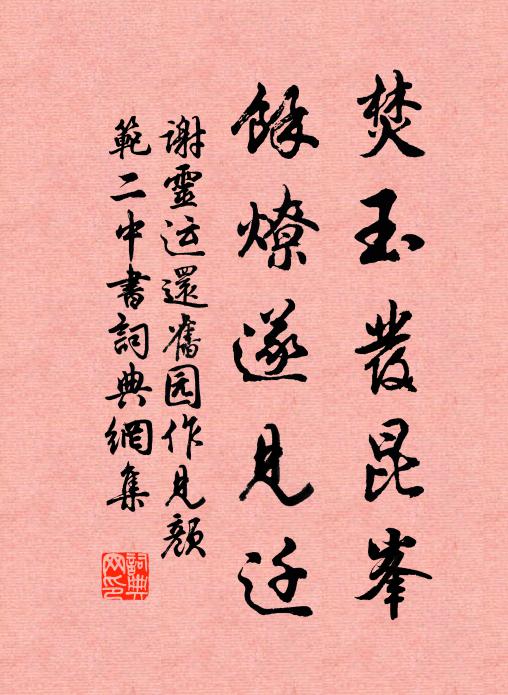 焚玉發昆峯
餘燎遂見迁
謝靈运還舊园作見顔
範二中書詞典網集
詞典网印